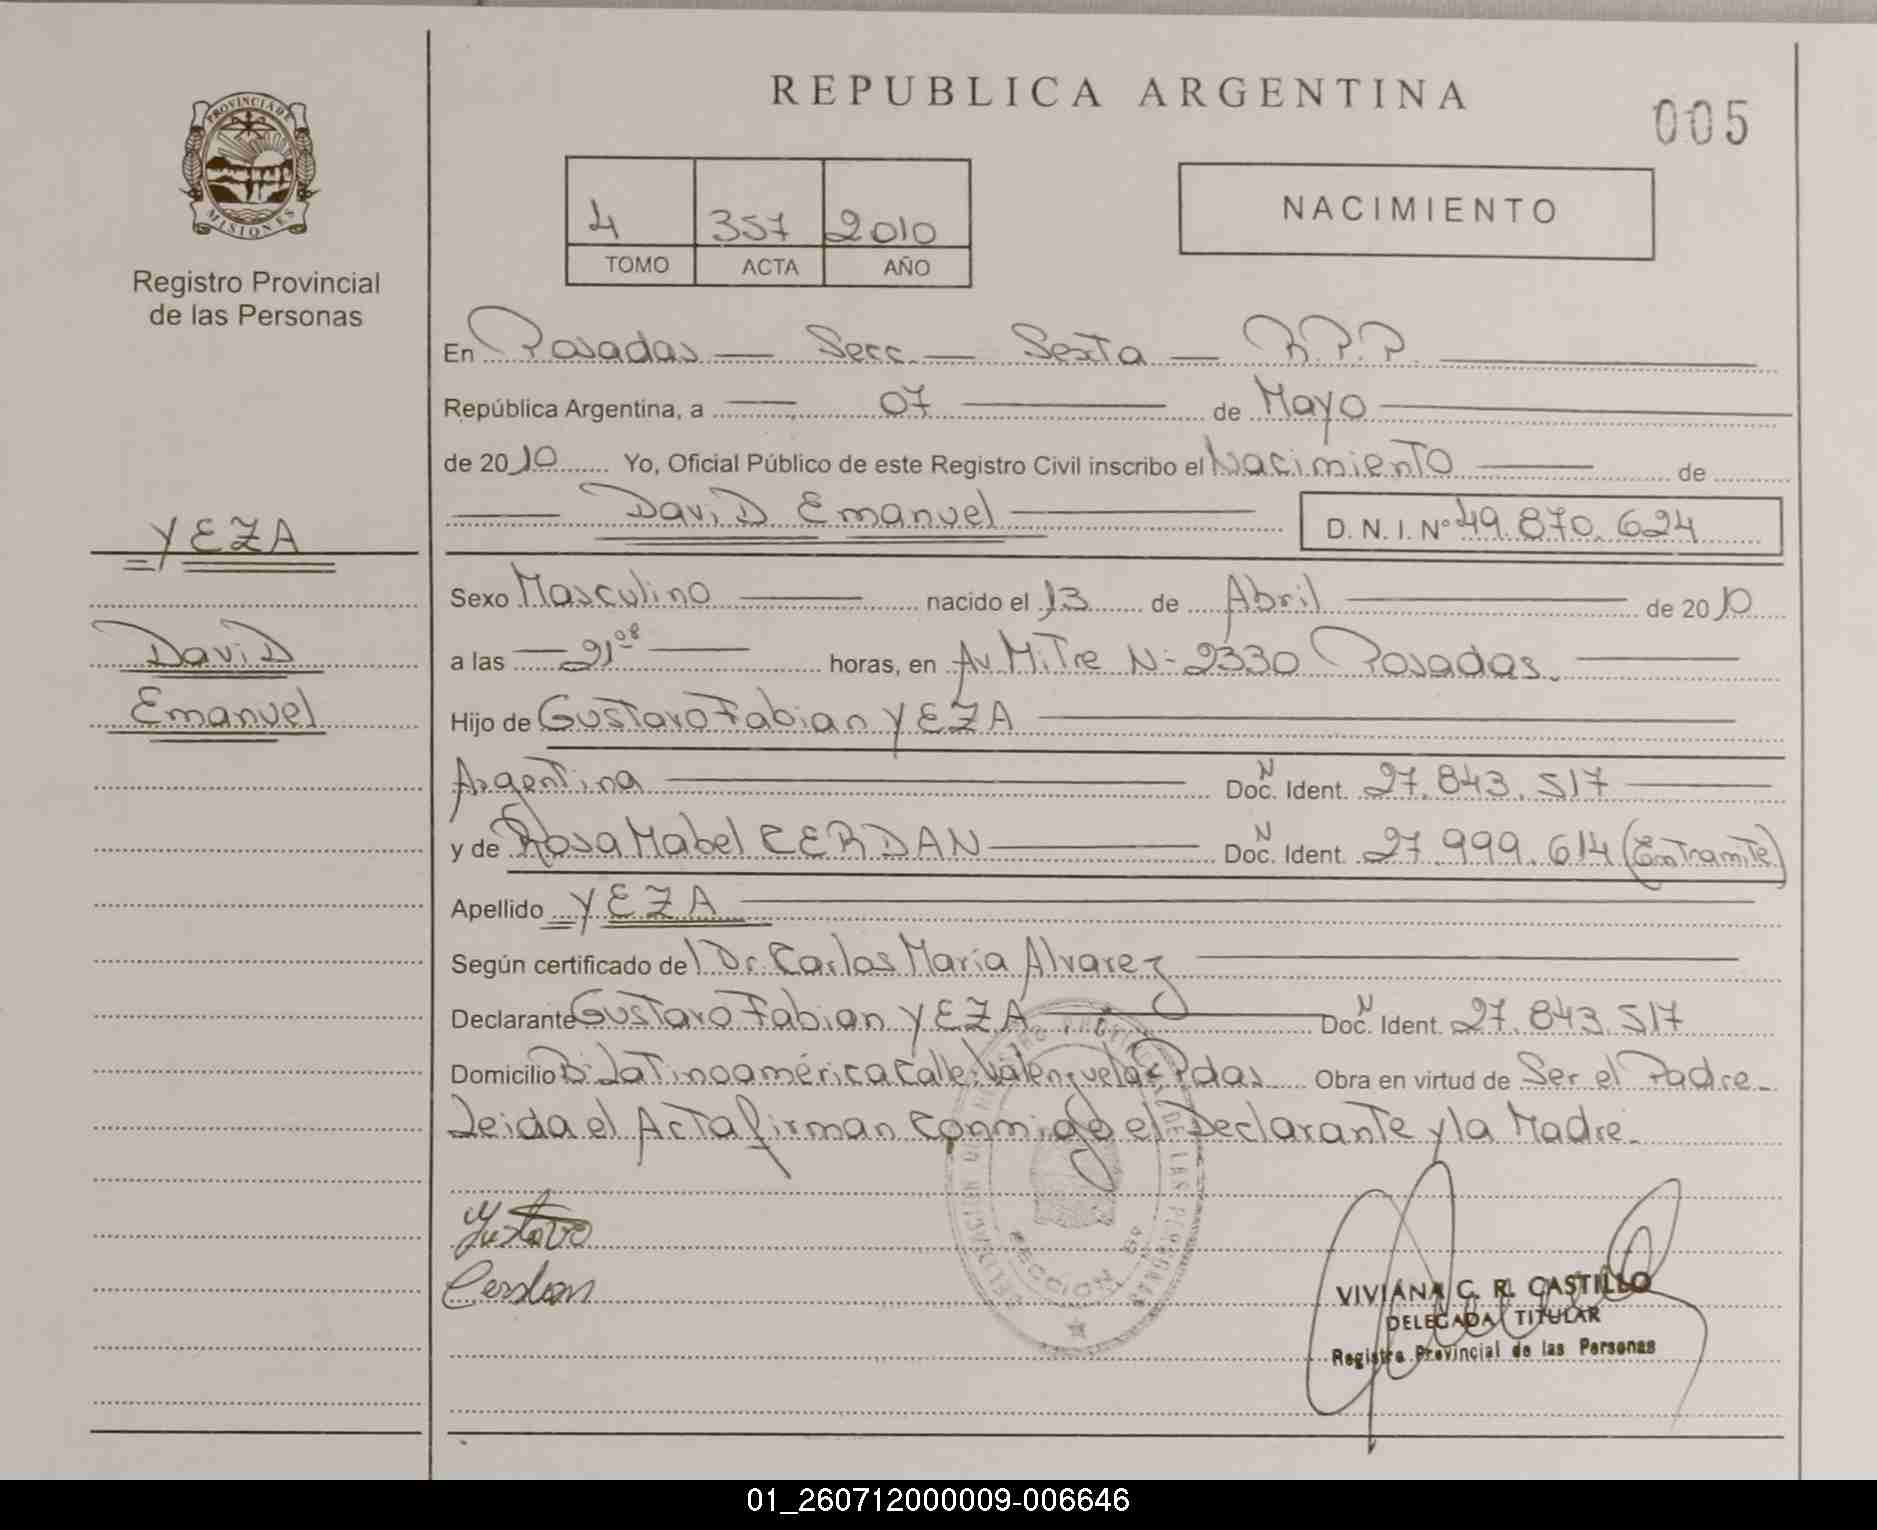 REPUBLICA ARGENTINA
005
PROVINCIA DE MISIONES
Registro Provincial
de las Personas
4 357 2010
TOMO ACTA AÑO
NACIMIENTO
En Posadas — Secc. — Sexta — R.P.P.
República Argentina, a 07 de Mayo
de 2010 Yo, Oficial Público de este Registro Civil inscribo el Nacimiento de
David Emanuel D. N. I. Nº 49.870.624
YEZA
David
Emanuel
Sexo Masculino nacido el 13 de Abril de 2010
a las 21⁰⁸ horas, en Av Mitre N: 2330 Posadas.
Hijo de Gustavo Fabian YEZA
Argentina Doc. N Ident. 27.843.517
y de Rosa Mabel CERDAN Doc. N Ident. 27.999.614 (En Tramite)
Apellido YEZA
Según certificado del Dr. Carlos María Alvarez
Declarante Gustavo Fabian YEZA Doc. N Ident. 27.843.517
Domicilio B: Latinoamérica Calle: Valenzuela Pdas Obra en virtud de Ser el Padre
Leida el Acta firman conmigo el Declarante y la Madre.
Gustavo
Cerdan
SECCION 6ª
VIVIANA C. R. CASTILLO
DELEGADA TITULAR
Registro Provincial de las Personas
01_260712000009-006646